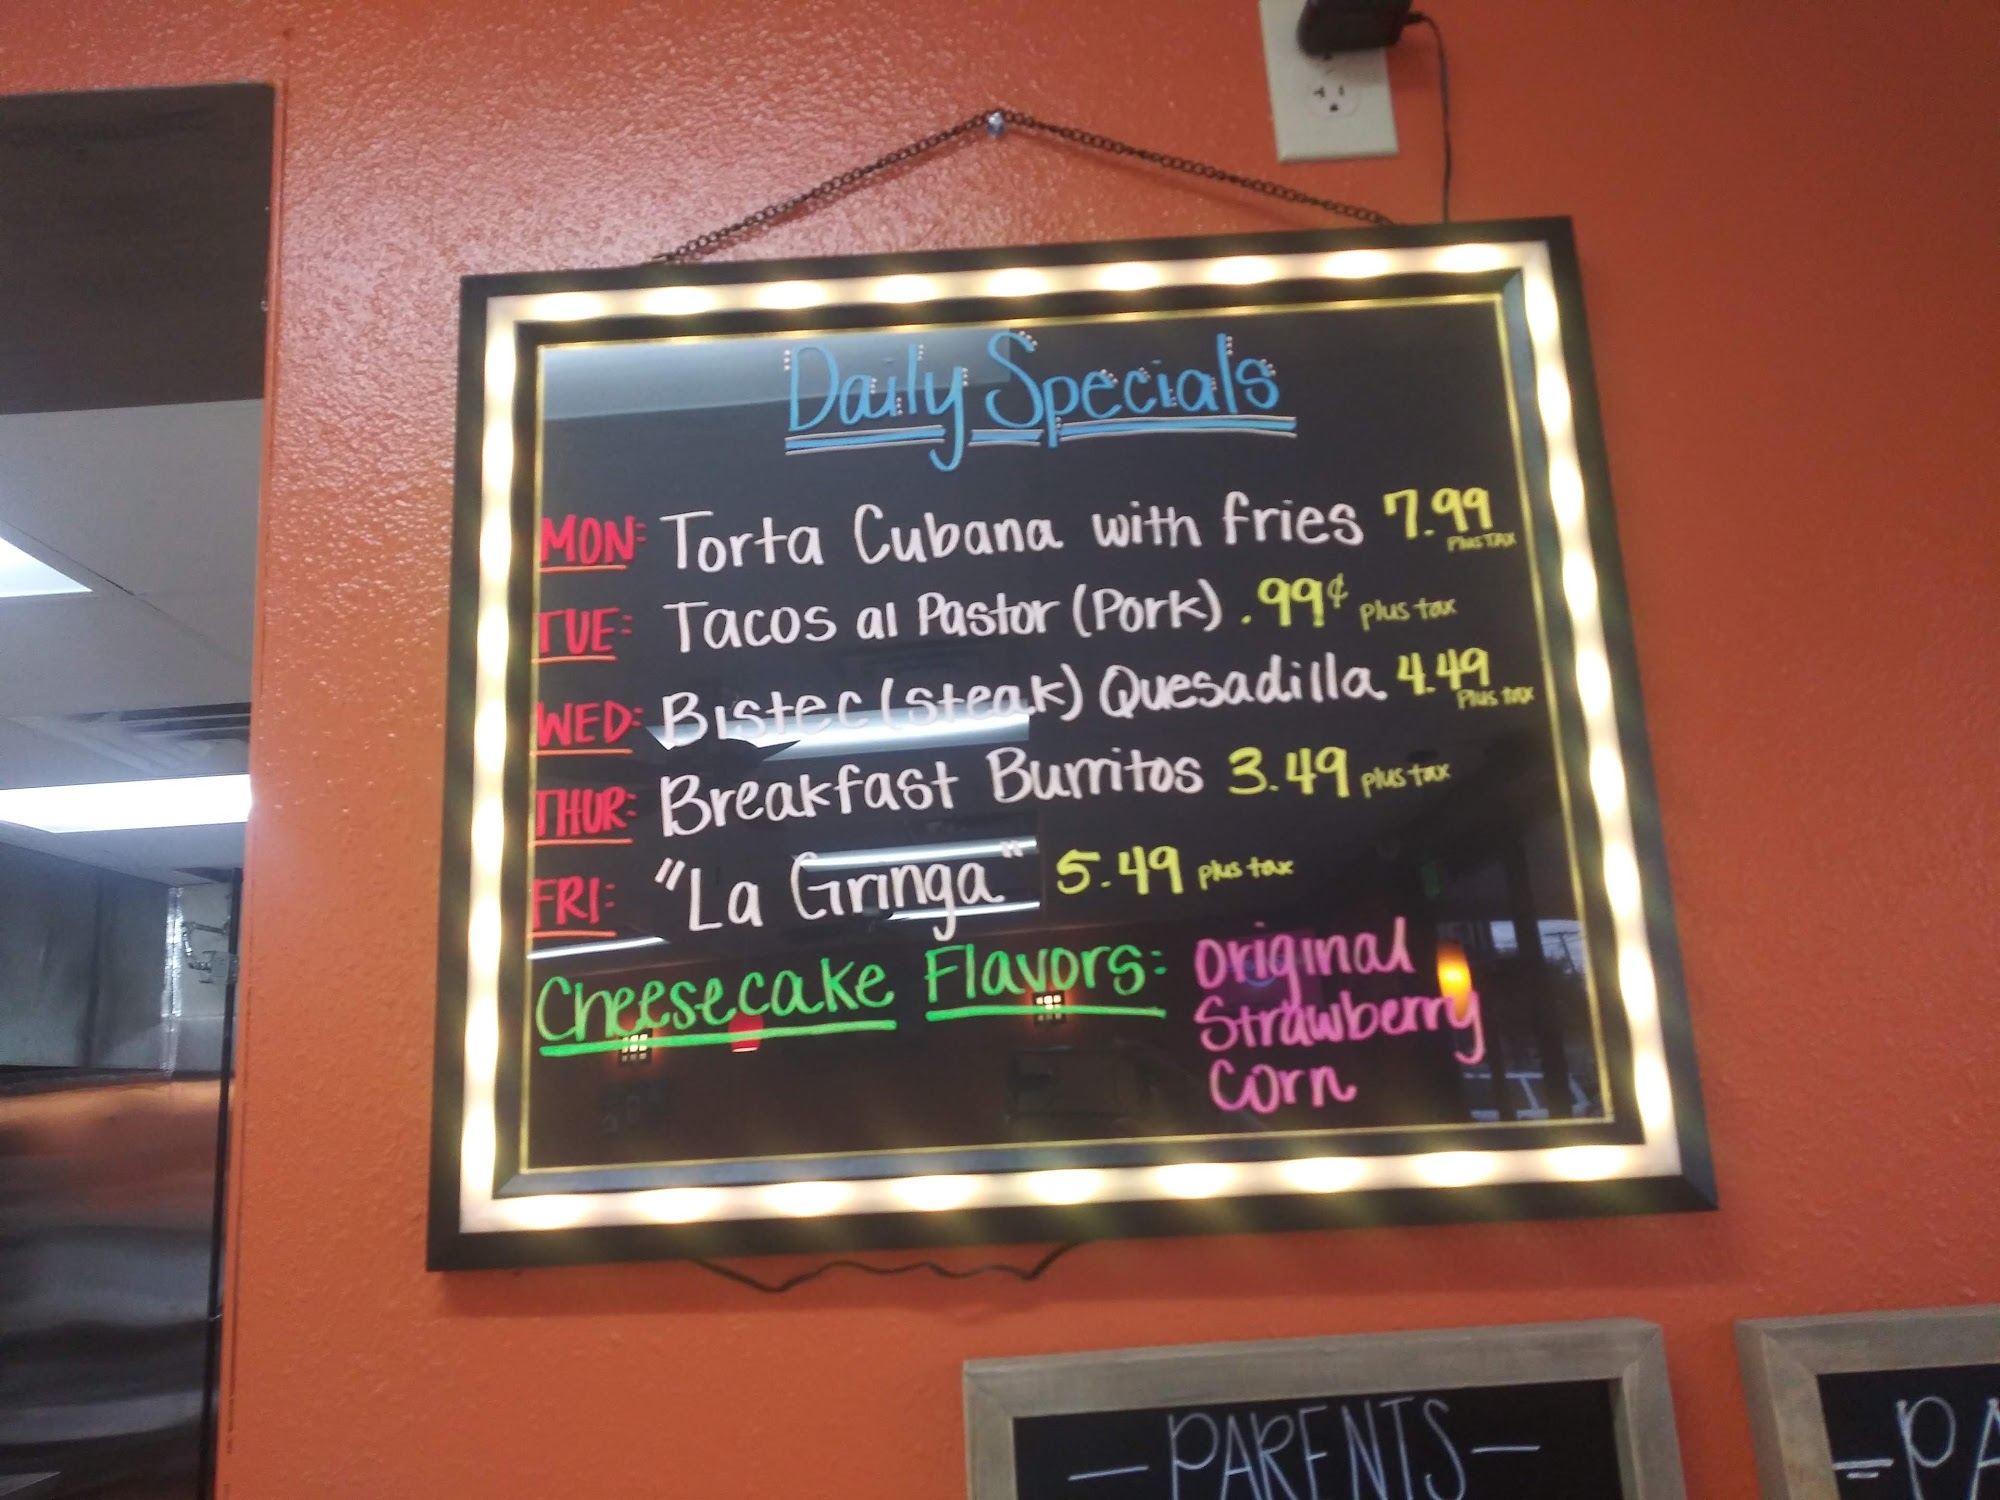 Daily Specials
MON: Torta Cubana with fries 7.99 PLUS TAX
TUE: Tacos al Pastor (Pork) .99¢ plus tax
WED: Bistec (steak) Quesadilla 4.49 Plus tax
THUR: Breakfast Burritos 3.49 plus tax
FRI: "La Gringa" 5.49 plus tax
Cheesecake Flavors: original
Strawberry
Corn
—PARENTS—